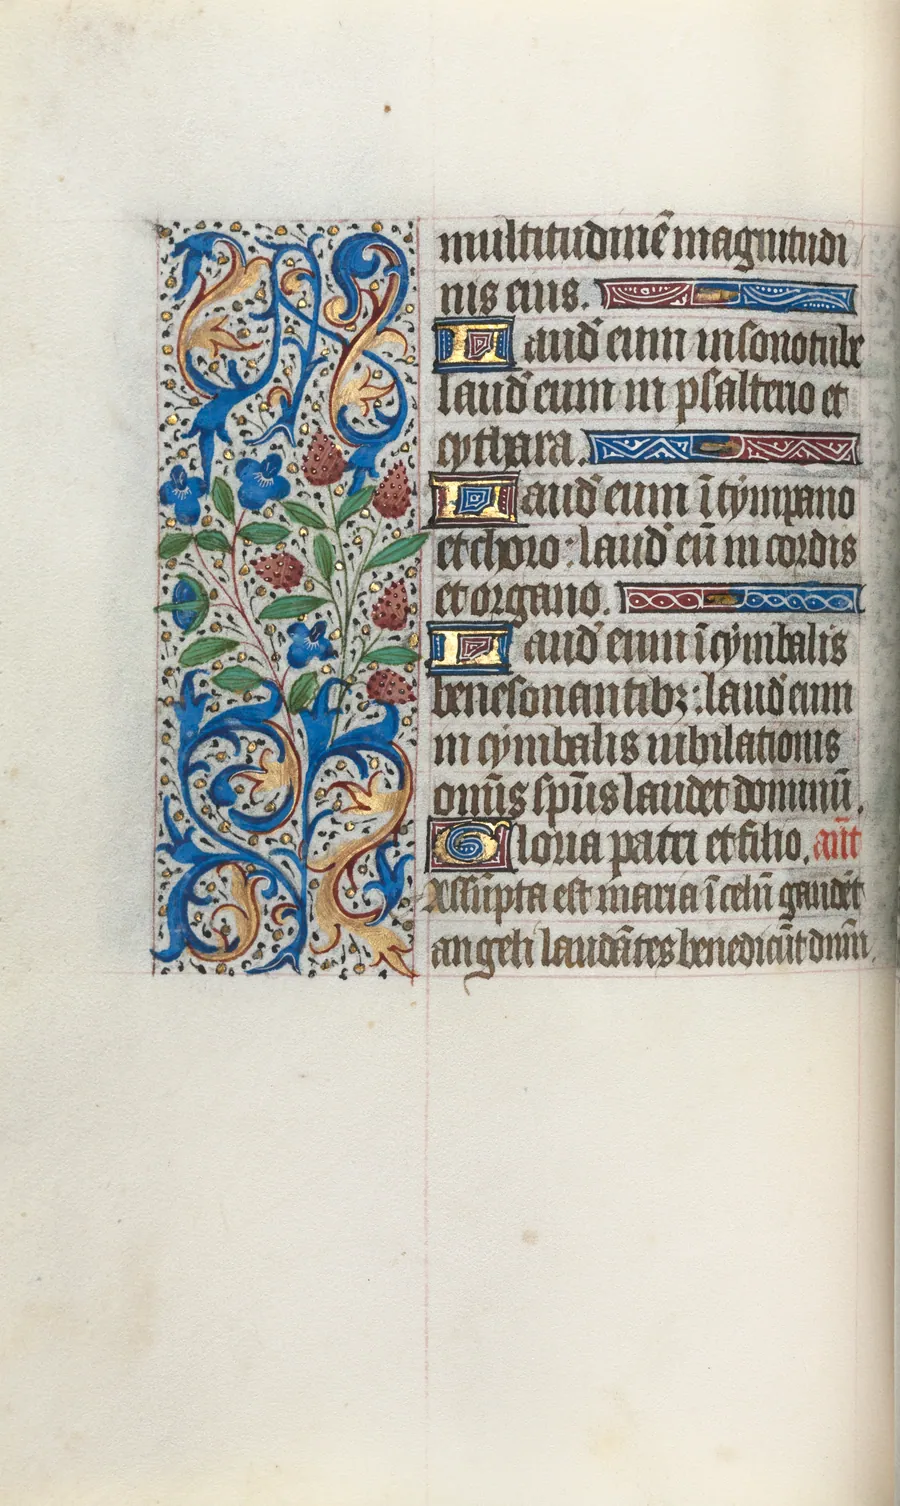 multitudinē magnitudi
nis eius.
Laud̄ eum in sono tube
laud̄ eum in psalterio et
cythara.
Laud̄ eum ī tympano
et choro: laud̄ eū in cordis
et organo.
Laud̄ eum ī cymbalis
benesonantibꝫ: laud̄ eum
in cymbalis iubilationis
omīs sp̄us laudet dominū.
Gloria patri et filio. an̄t
Assūpta est maria ī celū gaudēt
angeli laudātes benedicūt dn̄m.